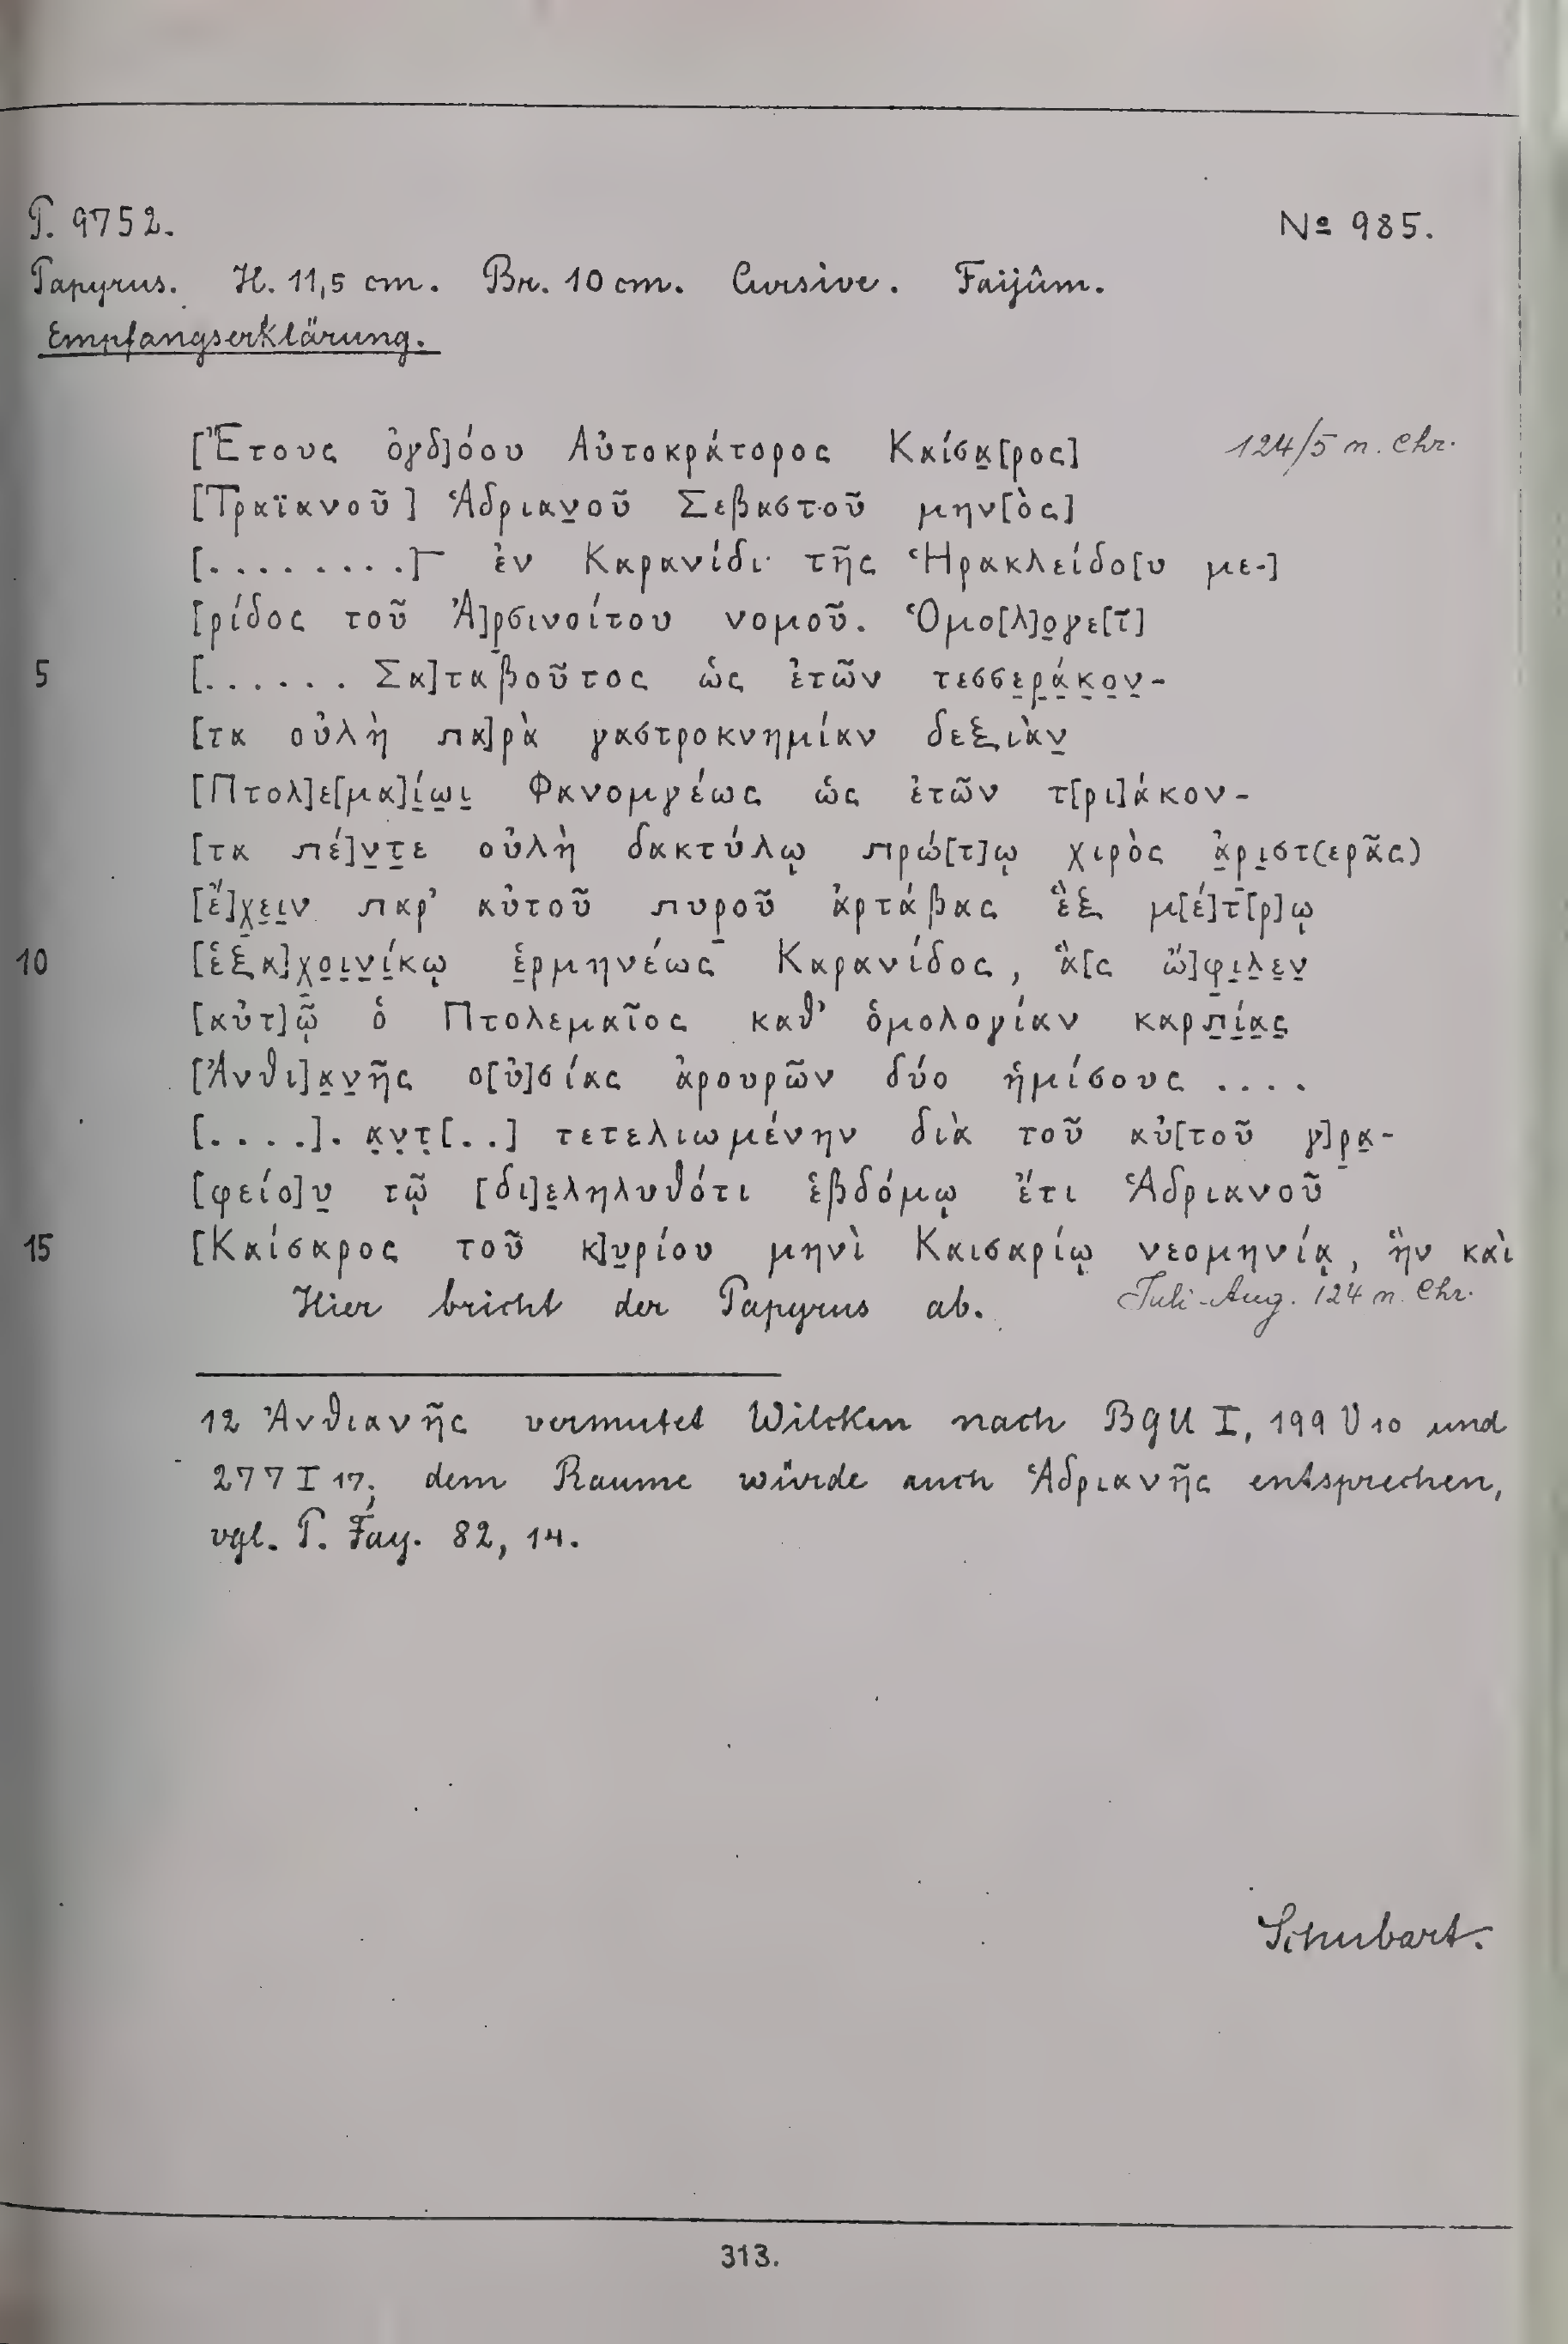 P. 9752. Nº 985.
Papyrus. H. 11,5 cm. Br. 10 cm. Cursive. Faijûm.
Empfangserklärung.
[Ἔτους ὀγδ]όου Αὐτοκράτορος Καίσα̣[ρος] 124/5 n. Chr.
[Τραϊανοῦ] Ἁδριαν̣οῦ Σεβαστοῦ μην[ὸς]
[. . . . . . . . .]‾ ἐν Καρανίδι τῆς Ἡρακλείδο[υ με-]
[ρίδος τοῦ Ἀ]ρ̣σινοίτου νομοῦ. Ὁμο[λ]ο̣γε[ῖ]
5 [. . . . . . Σα]ταβοῦτος ὡς ἐτῶν τεσσε̣ρ̣ά̣κ̣ο̣ν̣-
[τα οὐλὴ πα]ρὰ γαστροκνημίαν δεξιὰν̣
[Πτολ]ε[μα]ί̣ω̣ι̣ Φανομγέως ὡς ἐτῶν τ[ρι]άκον-
[τα πέ]ν̣τ̣ε οὐλὴ δακτύλῳ πρώ[τ]ῳ χιρὸς ἀ̣ρι̣στ(ερᾶς)
[ἔ]χ̣ε̣ι̣ν παρ' αὐτοῦ πυροῦ ἀρτάβας ἓξ μ[έ]τ[ρ]ῳ
10 [ἑξα]χ̣ο̣ι̣ν̣ί̣κῳ ἑ̣ρμηνέως Καρανίδος, ἃ[ς ὤ]φ̣ι̣λ̣ε̣ν̣
[αὐτ]ῷ ὁ Πτολεμαῖος καθ' ὁμολογίαν καρπ̣ί̣α̣ς̣
[Ἀνθι]α̣ν̣ῆς ο[ὐ]σίας ἀρουρῶν δύο ἡμίσους . . . .
[. . . .]. α̣ν̣τ̣[. .] τετελιωμένην διὰ τοῦ αὐ[τοῦ γ]ρ̣α̣-
[φείο]υ̣ τῷ [δι]ε̣ληλυθότι ἑβδόμῳ ἔτι Ἁδριανοῦ
15 [Καίσαρος τοῦ κ]υ̣ρίου μηνὶ Καισαρίῳ νεομηνίᾳ, ἣν καὶ
Hier bricht der Papyrus ab. Juli-Aug. 124 n. Chr.
12 Ἀνθιανῆς vermutet Wilcken nach BGU I, 199 V 10 und
277 I 17; dem Raume würde auch Ἁδριανῆς entsprechen,
vgl. P. Fay. 82, 14.
Schubart.
313.